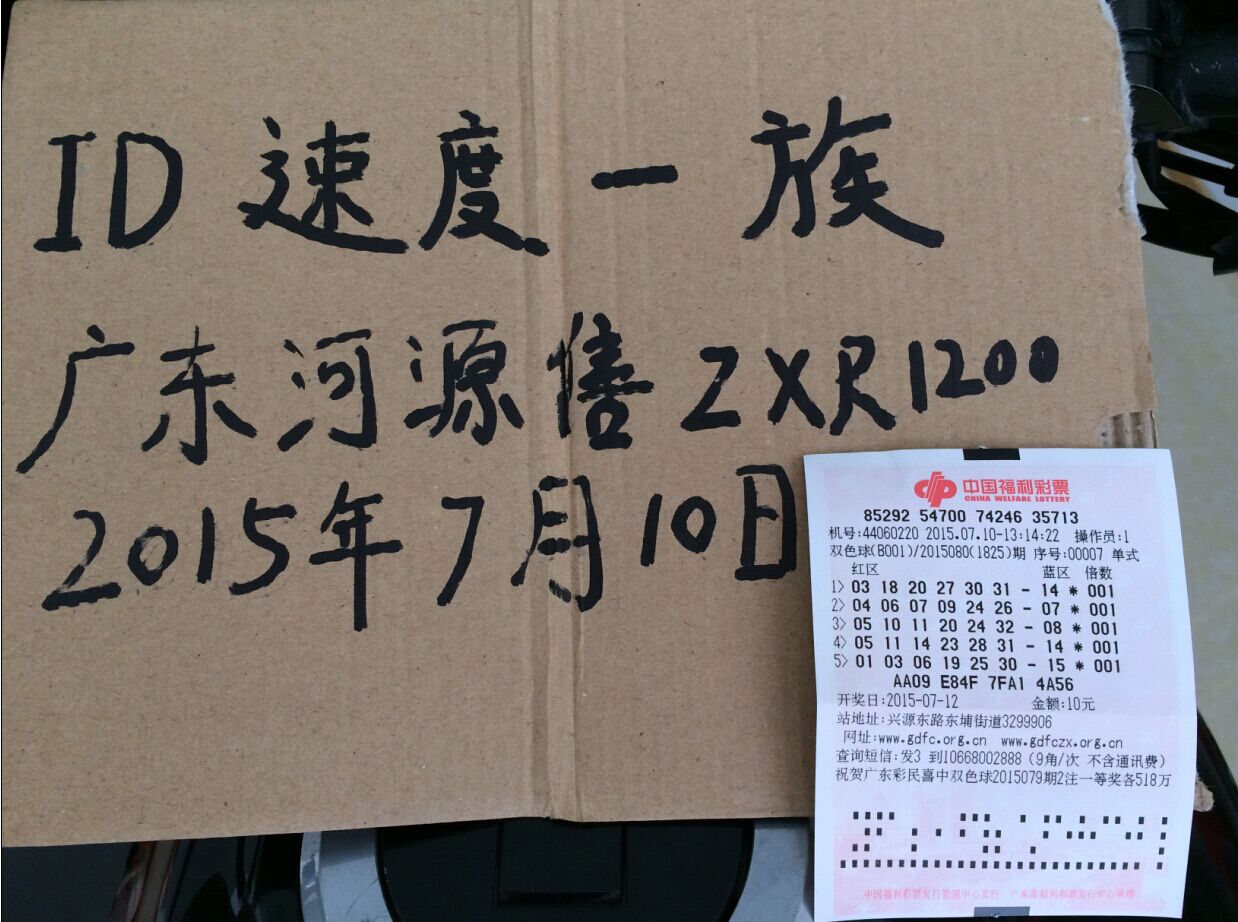 ID 速度一族
广东河源售ZXR1200
2015年7月10日
中国福利彩票
CHINA WELFARE LOTTERY
85292 54700 74246 35713
机号:44060220 2015.07.10-13:14:22 操作员:1
双色球(B001)/2015080(1825)期 序号:00007 单式
红区 蓝区 倍数
1> 03 18 20 27 30 31 - 14 * 001
2> 04 06 07 09 24 26 - 07 * 001
3> 05 10 11 20 24 32 - 08 * 001
4> 05 11 14 23 28 31 - 14 * 001
5> 01 03 06 19 25 30 - 15 * 001
AA09 E84F 7FA1 4A56
开奖日:2015-07-12 金额:10元
站地址:兴源东路东埔街道3299906
网址:www.gdfc.org.cn www.gdfczx.org.cn
查询短信:发3 到10668002888 (9角/次 不含通讯费)
祝贺广东彩民喜中双色球2015079期2注一等奖各518万
中国福利彩票发行管理中心发行 广东省福利彩票发行中心承销